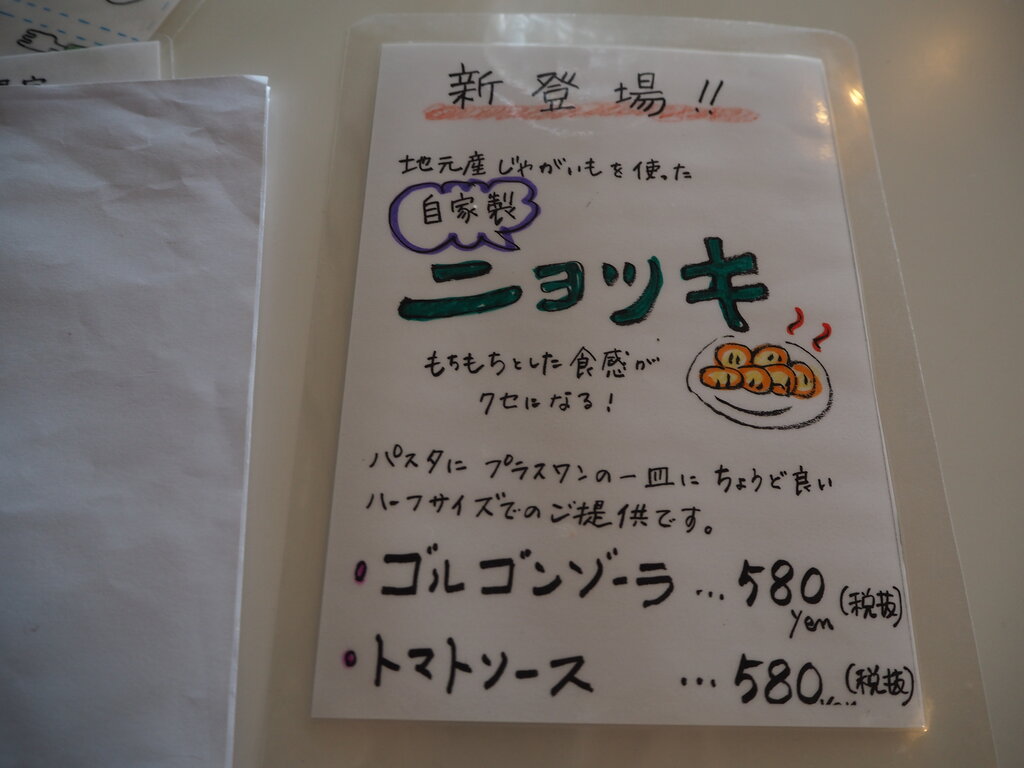 新登場!!
地元産じゃがいもを使った
自家製
ニョッキ
もちもちとした食感が
クセになる!
パスタにプラスワンの一皿にちょうど良い
ハーフサイズでのご提供です。
・ゴルゴンゾーラ…580yen(税抜)
・トマトソース …580yen(税抜)